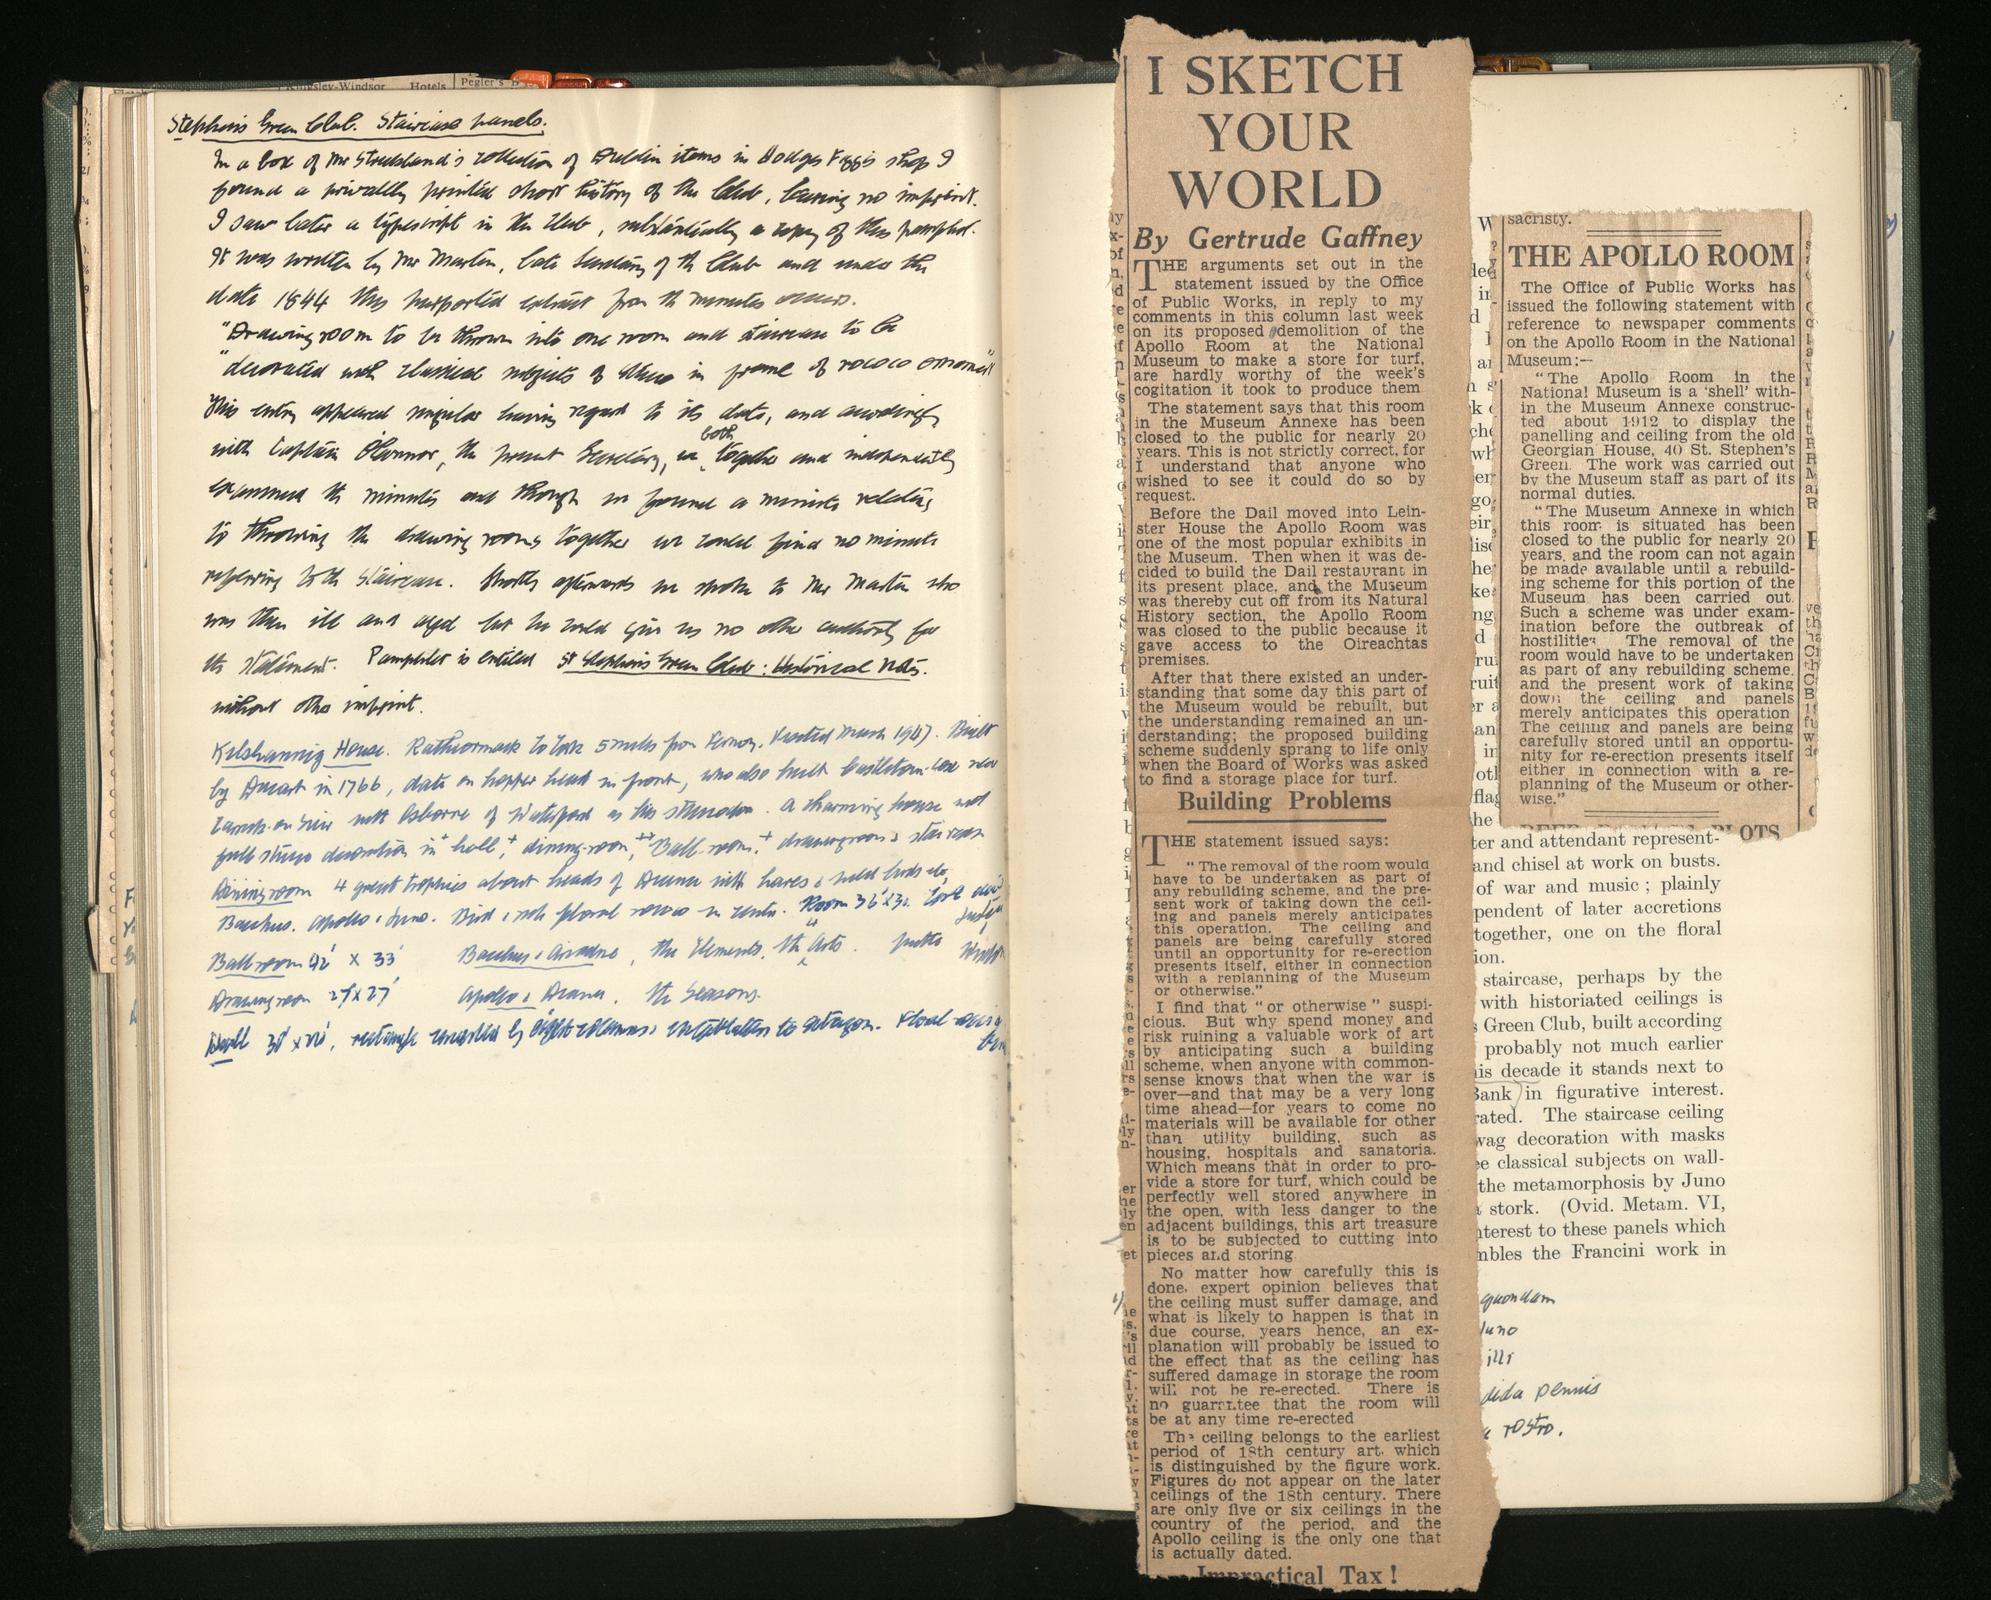 Kingsley-Windsor Hotels Pegler's
Stephens Green Club. Staircase panels.
In a box of Mr Strickland's collection of Dublin items in Hodges Figgis shop I
found a privately printed short history of the Club, bearing no imprint.
I saw later a typescript in the Club, substantially a copy of this pamphlet.
It was written by Mr Martin, late Secretary of the Club and under the
date 1844 this purported extract from the minutes occurs.
"Drawing room to be thrown into one room and staircase to be
"decorated with classical subjects of stucco in frame of rococo ornament"
This entry appeared singular having regard to its date, and accordingly
with Captain O'Connor, the present Secretary, we both together and independently
examined the minutes and though we found a minute relating
to throwing the drawing rooms together we could find no minute
referring to the staircase. Shortly afterwards we spoke to Mr Martin who
was then ill and aged but he could give us no other authority for
the statement. Pamphlet is entitled St Stephens Green Club: Historical Notes.
without other imprint.
Kilshannig House. Rathcormack Co Cork 5 miles from Fermoy. Visited March 1947. Built
by Ducart in 1766, date on hopper head in front, who also built Castletown Cox near
Carrick-on-Suir with Osborne of Waterford as his stuccodor. A charming house with
full stucco decoration in hall, dining-room, Ball-room, drawingroom & staircase
Dining room 4 great trophies about heads of Diana with hares & birds etc,
Bacchus. Apollo & Juno. Bird & floral rococo in centre. Room 36' x 30'.
Ball room 42' x 33' Bacchus & Ariadne, the Elements, the Arts. putti
Drawing room 27' x 27' Apollo & Diana. the Seasons.
Hall 30' x 20', rectangle converted by eight columns & entablatures to octagon. Floral
I SKETCH
YOUR
WORLD
By Gertrude Gaffney
THE arguments set out in the
statement issued by the Office
of Public Works, in reply to my
comments in this column last week
on its proposed demolition of the
Apollo Room at the National
Museum to make a store for turf,
are hardly worthy of the week's
cogitation it took to produce them
The statement says that this room
in the Museum Annexe has been
closed to the public for nearly 20
years. This is not strictly correct, for
I understand that anyone who
wished to see it could do so by
request.
Before the Dail moved into Lein-
ster House the Apollo Room was
one of the most popular exhibits in
the Museum. Then when it was de-
cided to build the Dail restaurant in
its present place, and the Museum
was thereby cut off from its Natural
History section, the Apollo Room
was closed to the public because it
gave access to the Oireachtas
premises.
After that there existed an under-
standing that some day this part of
the Museum would be rebuilt, but
the understanding remained an un-
derstanding; the proposed building
scheme suddenly sprang to life only
when the Board of Works was asked
to find a storage place for turf.
Building Problems
THE statement issued says:
"The removal of the room would
have to be undertaken as part of
any rebuilding scheme, and the pre-
sent work of taking down the ceil-
ing and panels merely anticipates
this operation. The ceiling and
panels are being carefully stored
until an opportunity for re-erection
presents itself, either in connection
with a replanning of the Museum
or otherwise."
I find that "or otherwise" suspi-
cious. But why spend money and
risk ruining a valuable work of art
by anticipating such a building
scheme, when anyone with common-
sense knows that when the war is
over—and that may be a very long
time ahead—for years to come no
materials will be available for other
than utility building, such as
housing, hospitals and sanatoria.
Which means that in order to pro-
vide a store for turf, which could be
perfectly well stored anywhere in
the open, with less danger to the
adjacent buildings, this art treasure
is to be subjected to cutting into
pieces and storing.
No matter how carefully this is
done, expert opinion believes that
the ceiling must suffer damage, and
what is likely to happen is that in
due course, years hence, an ex-
planation will probably be issued to
the effect that as the ceiling has
suffered damage in storage the room
will not be re-erected. There is
no guarantee that the room will
be at any time re-erected
The ceiling belongs to the earliest
period of 18th century art, which
is distinguished by the figure work.
Figures do not appear on the later
ceilings of the 18th century. There
are only five or six ceilings in the
country of the period, and the
Apollo ceiling is the only one that
is actually dated.
Impractical Tax!
sacristy.
THE APOLLO ROOM
The Office of Public Works has
issued the following statement with
reference to newspaper comments
on the Apollo Room in the National
Museum:—
"The Apollo Room in the
National Museum is a 'shell' with-
in the Museum Annexe construc-
ted about 1912 to display the
panelling and ceiling from the old
Georgian House, 40 St. Stephen's
Green. The work was carried out
by the Museum staff as part of its
normal duties.
"The Museum Annexe in which
this room is situated has been
closed to the public for nearly 20
years, and the room can not again
be made available until a rebuild-
ing scheme for this portion of the
Museum has been carried out.
Such a scheme was under exam-
ination before the outbreak of
hostilities. The removal of the
room would have to be undertaken
as part of any rebuilding scheme,
and the present work of taking
down the ceiling and panels
merely anticipates this operation
The ceiling and panels are being
carefully stored until an opportu-
nity for re-erection presents itself
either in connection with a re-
planning of the Museum or other-
wise."
PLOTS
ter and attendant represent-
and chisel at work on busts.
of war and music; plainly
pendent of later accretions
together, one on the floral
ion.
staircase, perhaps by the
with historiated ceilings is
Green Club, built according
probably not much earlier
his decade it stands next to
Bank in figurative interest.
rated. The staircase ceiling
wag decoration with masks
ee classical subjects on wall-
the metamorphosis by Juno
stork. (Ovid. Metam. VI,
nterest to these panels which
mbles the Francini work in
quondam
Juno
illi
dida pennis
rostro.